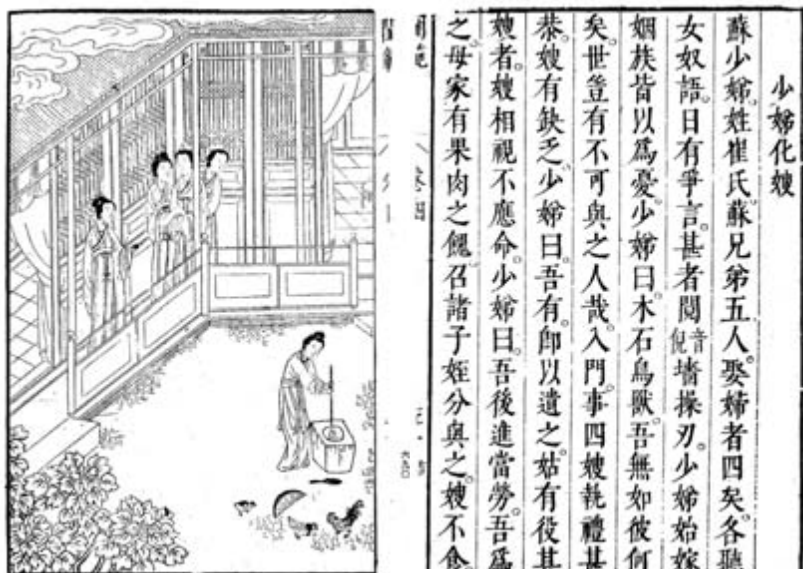 少娣化嫂
蘇少娣。姓崔氏。蘇兄弟五人。娶婦者四矣。各聽
女奴語。日有爭言。甚者鬩音倪墻操刃。少娣始嫁
姻族皆以爲憂。少娣曰。木石鳥獸。吾無如彼何
矣。世豈有不可與之人哉。入門。事四嫂執禮甚
恭。嫂有缺乏。少娣曰。吾有。卽以遺之。姑有役其
嫂者。嫂相視不應命。少娣曰。吾後進當勞。吾爲
之。母家有果肉之餽。召諸子姪分與之。嫂不食